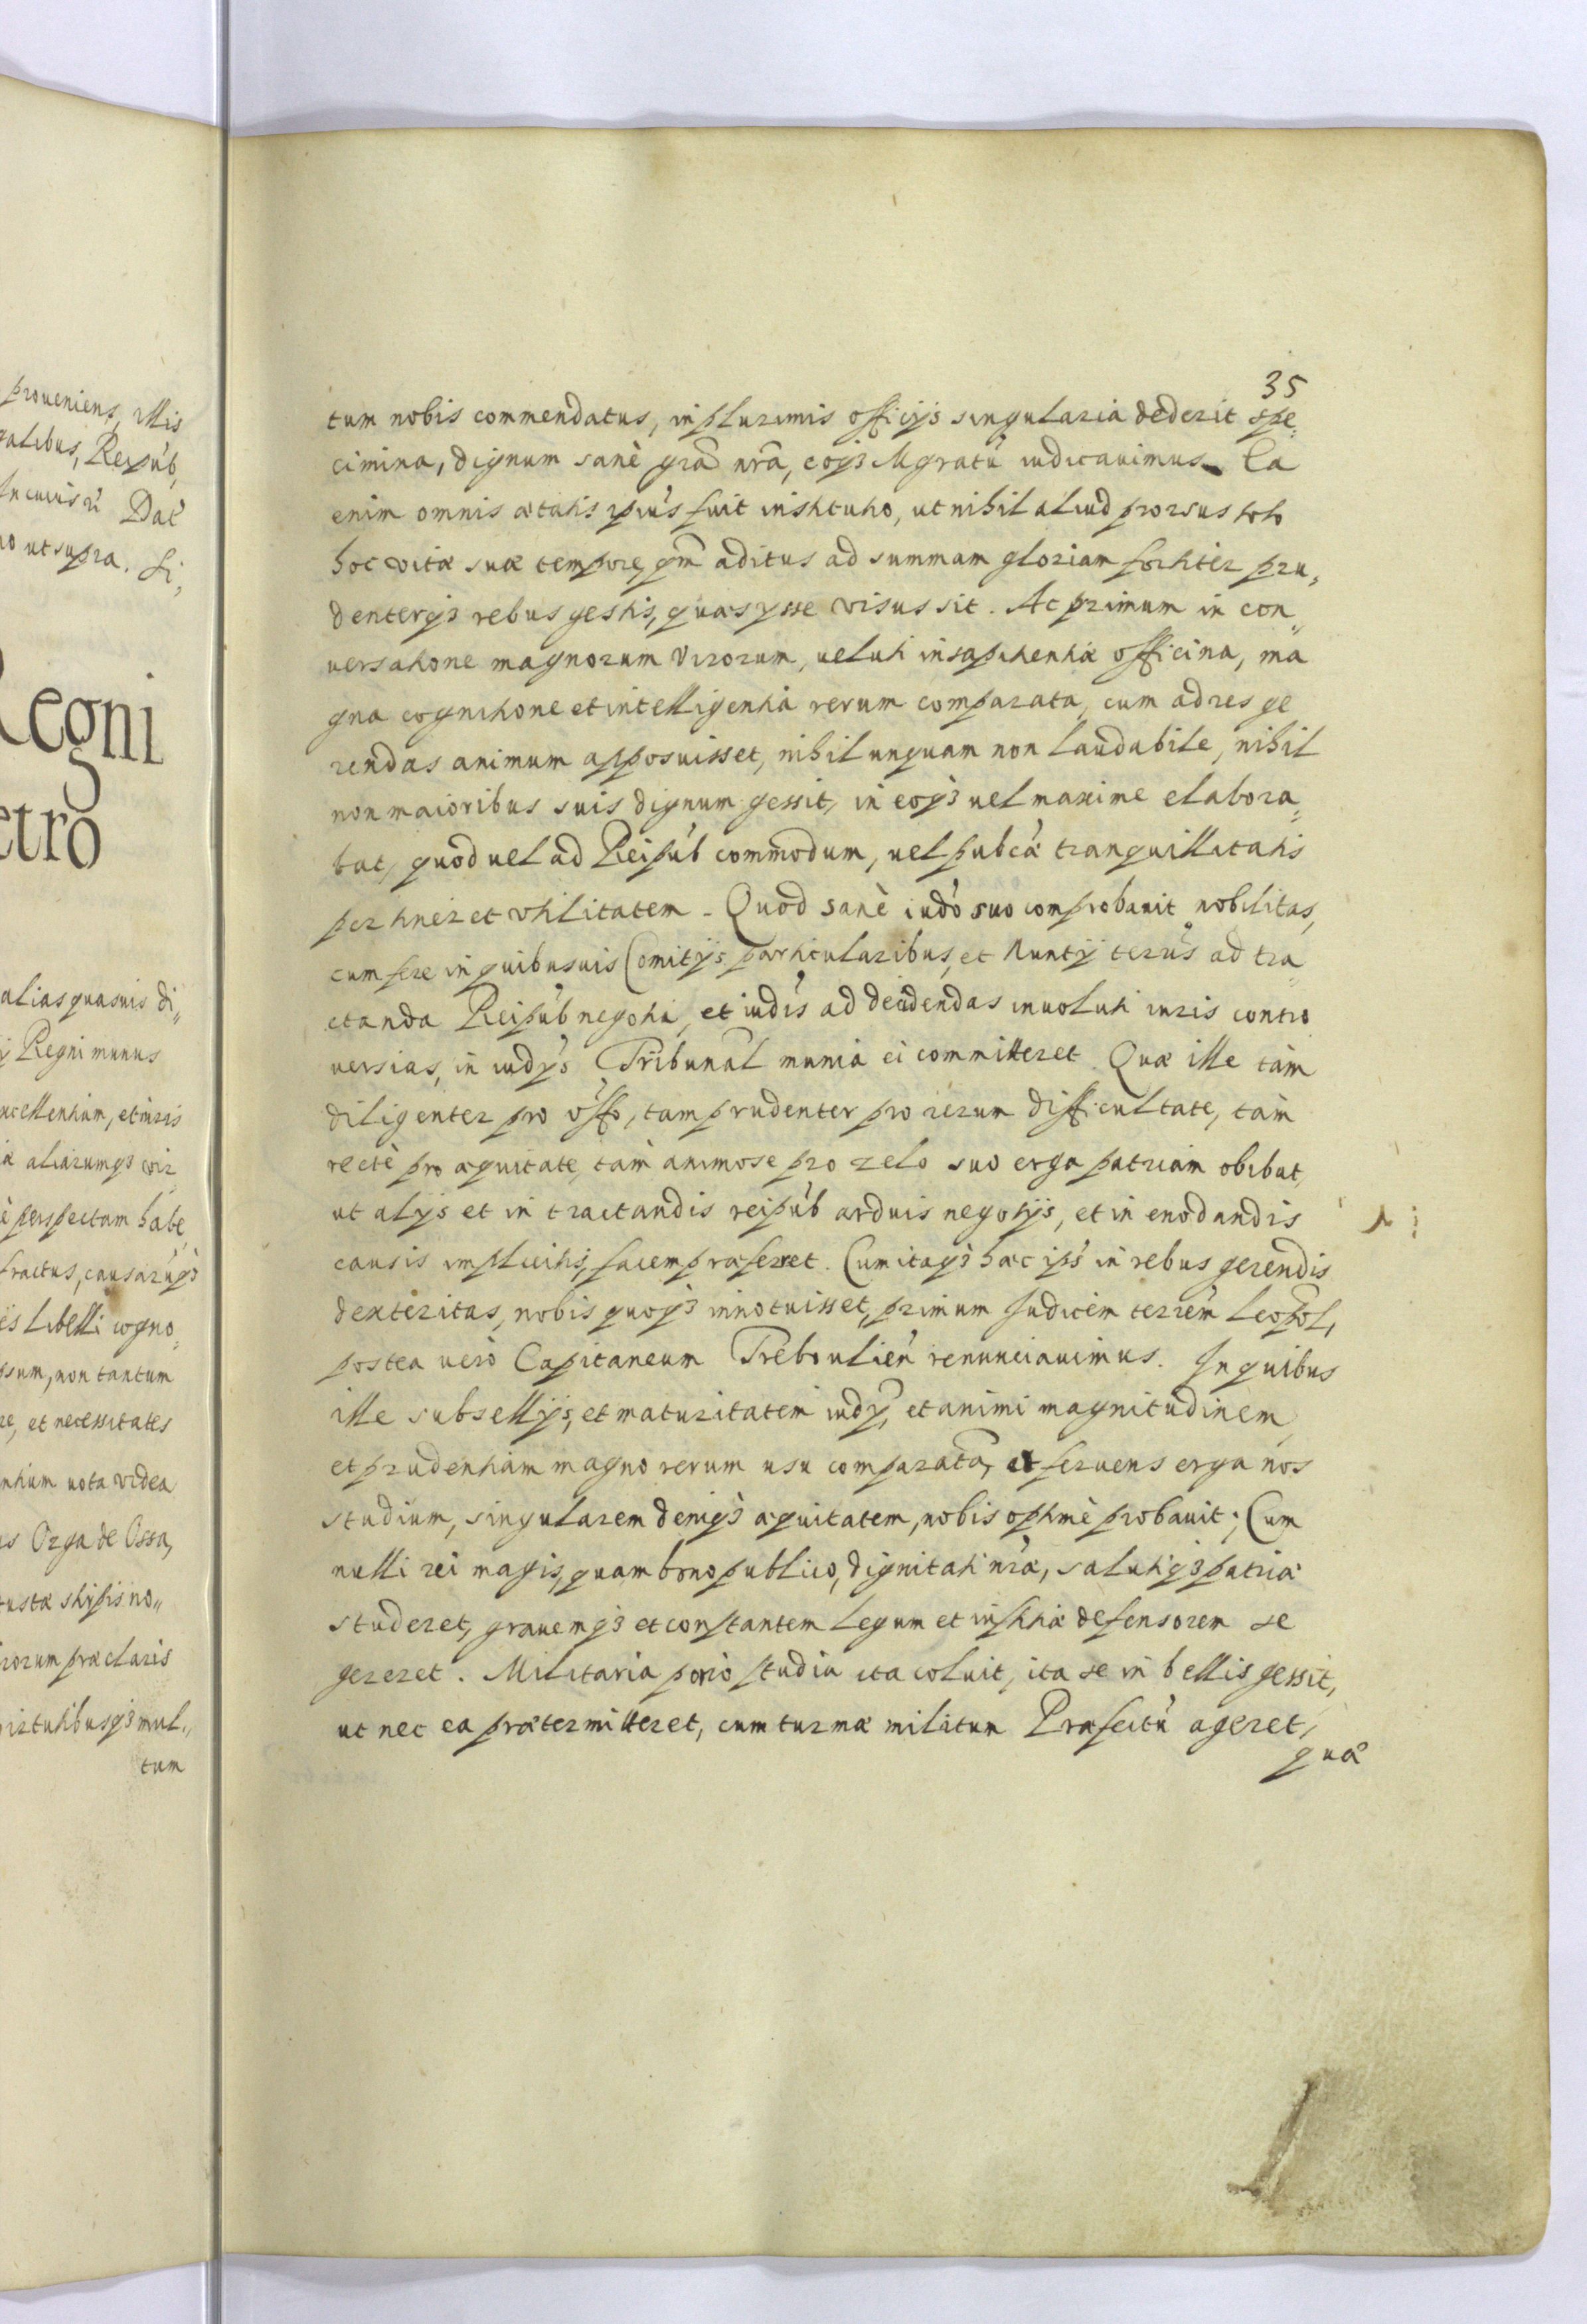 proueniens, illis
galibus, Reipub,
In cuius rei Dat
no ut supra. Si,
Regni
etro
alias quasuis di,,
y Regni munus
xcellentiam, et iuris
aliarumq3 vir
perspectam habe
fractus, causarũq3
Libelli cogno,
psum, non tantum
re, et necessitates
uota videa
us Orga de Ossa,
ustæ stipis no,,
irorum præclaris
virtutibusq3 mul,,
tum
35
tum nobis commendatus, in plurimis officijs singularia dederit spe,
cimina, dignum sanè gra nra, eoq3 Mgratũ iudicauimus. Ea
enim omnis ætatis ipius fuit institutio, ut nihil aliud prorsus toto
hoc vitæ suæ tempore, qm aditus ad summam gloriam fortiter pru,
denterq3 rebus gestis, quæsysse visus sit. Ac primum in con,,
uersatione magnorum virorum, ueluti in sapientiæ officina, ma
gna cognitione et intelligentia rerum comparata, cum ad res ge
rendas animum apposuisset, nihil unquam non laudabile, nihil
non maioribus suis dignum gessit, in eoq3 uel maxime elabora,,
bat, quod uel ad Reipub commodum, uel pubcæ tranquillitatis
pertineret vtilitatem. Quod sanè iudo suo comprobauit nobilitas,
cum fere in quibusuis Comitijs particularibus, et Nuntij terris ad tra
ctanda Reipub negotia, et iudis ad decidendas inuoluti iuris contro
uersias, in iudijs Tribunal munia ei committeret. Quæ ille tàm
diligenter pro offo, tam prudenter pro rerum difficultate, tàm
rectè pro æquitate, tàm animose pro zelo suo erga patriam obibat,
ut alijs et in tractandis reipub arduis negotijs, et in enodandis
causis implicitis, facem præferret. Cum itaq3 hæc ips in rebus gerendis
dexteritas, nobis quoq3 innotuisset, primum Judicem terrem Leopol,
postea uerò Capitaneum Treboulien renunciauimus. In quibus
ille subsellijs, et maturitatem iudij, et animi magnitudinem,
et prudentiam magno rerum usu comparatã, et feruens erga nos
studium, singularem deniq3 æquitatem, nobis optimè probauit; Cum
nulli rei magis, quam bono publico, dignitati nræ, salutiq3 patriæ
studeret, grauemq3 et constantem legum et iustitiæ defensorem se
gereret. Militaria porrò studia ita coluit, ita se in bellis gessit,
ut nec ea prætermitteret, cum turmæ militum Præfectũ ageret,
quæ